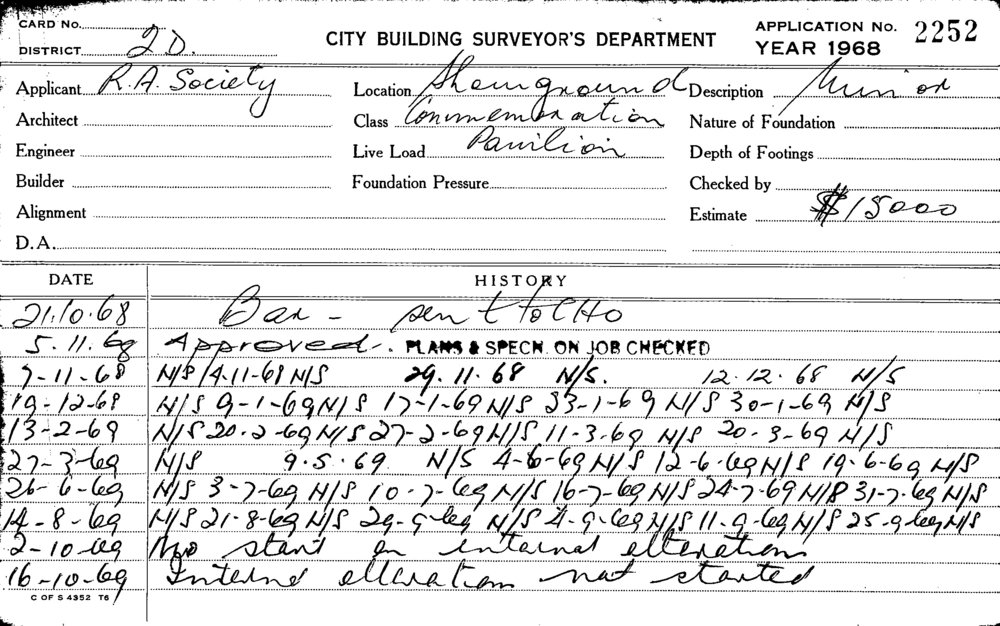 CARD No.
DISTRICT 2D.
CITY BUILDING SURVEYOR'S DEPARTMENT
APPLICATION No. 2252
YEAR 1968
Applicant R.A. Society
Location Showground
Description Minor
Architect
Class Commemoration
Nature of Foundation
Engineer
Live Load Pavilion
Depth of Footings
Builder
Foundation Pressure
Checked by
Alignment
Estimate $15000
D.A.
DATE HISTORY
21.10.68 Bar - sent to CHO
5.11.68 Approved. PLANS & SPECN. ON JOB CHECKED
7-11-68 N/S 14.11-68 N/S 29.11.68 N/S. 12.12.68 N/S
19-12-68 N/S 9-1-69 N/S 17-1-69 N/S 23-1-69 N/S 30-1-69 N/S
13-2-69 N/S 20-2-69 N/S 27-2-69 N/S 11-3-69 N/S 20-3-69 N/S
27-3-69 N/S 9.5.69 N/S 4-6-69 N/S 12-6-69 N/S 19-6-69 N/S
26-6-69 N/S 3-7-69 N/S 10-7-69 N/S 16-7-69 N/S 24-7-69 N/S 31-7-69 N/S
14-8-69 N/S 21-8-69 N/S 29-9-69 N/S 4-9-69 N/S 11-9-69 N/S 25-9-69 N/S
2-10-69 No start on internal alterations
16-10-69 Internal alterations not started
C OF S 4352 T6